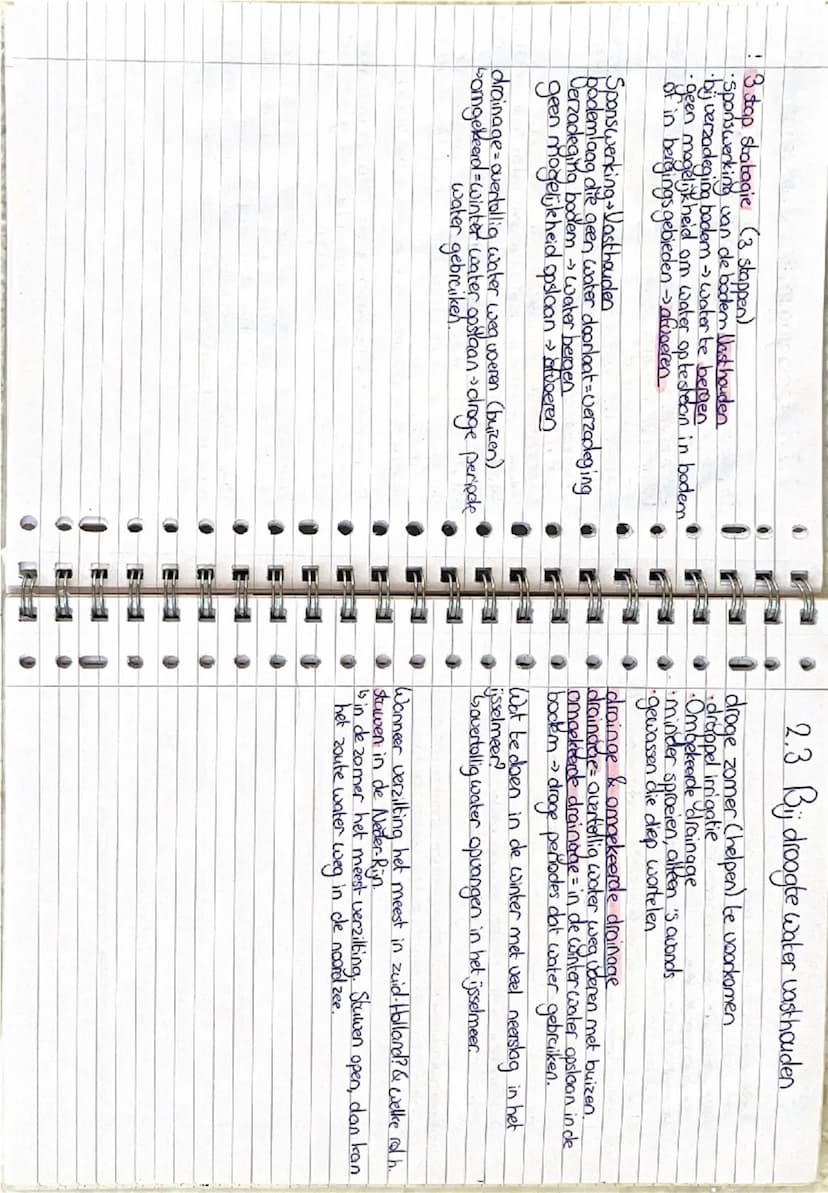 ! 3 stap stratagie (3 stappen)
· sponswerking van de bodem vasthouden
· bij verzadeging bodem → water te bergen
· geen mogelijkheid om water op te slaan in bodem
of in bergingsgebieden → afvoeren
Sponswerking → vasthouden
bodemlaag die geen water doorlaat = verzadeging
verzadeging bodem → water bergen
geen mogelijkheid opslaan → afvoeren
drainage = overtollig water weg voeren (buizen)
↳ omgekeerd = winter water opslaan → droge periode
water gebruiken.
2.3 Bij droogte water vasthouden
droge zomer (helpen) te voorkomen
· druppel irrigatie
· Omgekeerde drainage
· minder sproeien, alleen 's avonds
· gewassen die diep wortelen
drainge & omgekeerde drainage
drainage = overtollig water weg voeren met buizen.
omgekeerde drainage = in de winter water opslaan in de
bodem → droge periodes dat water gebruiken.
Wat te doen in de winter met veel neerslag in het
ijsselmeer?
↳ overtollig water opvangen in het ijsselmeer.
Wanneer verzilting het meest in zuid-Holland? & welke rol h.
stuwen in de Neder-Rijn.
↳ in de zomer het meest verzilting. Stuwen open, dan kan
het zoute water weg in de noordzee.